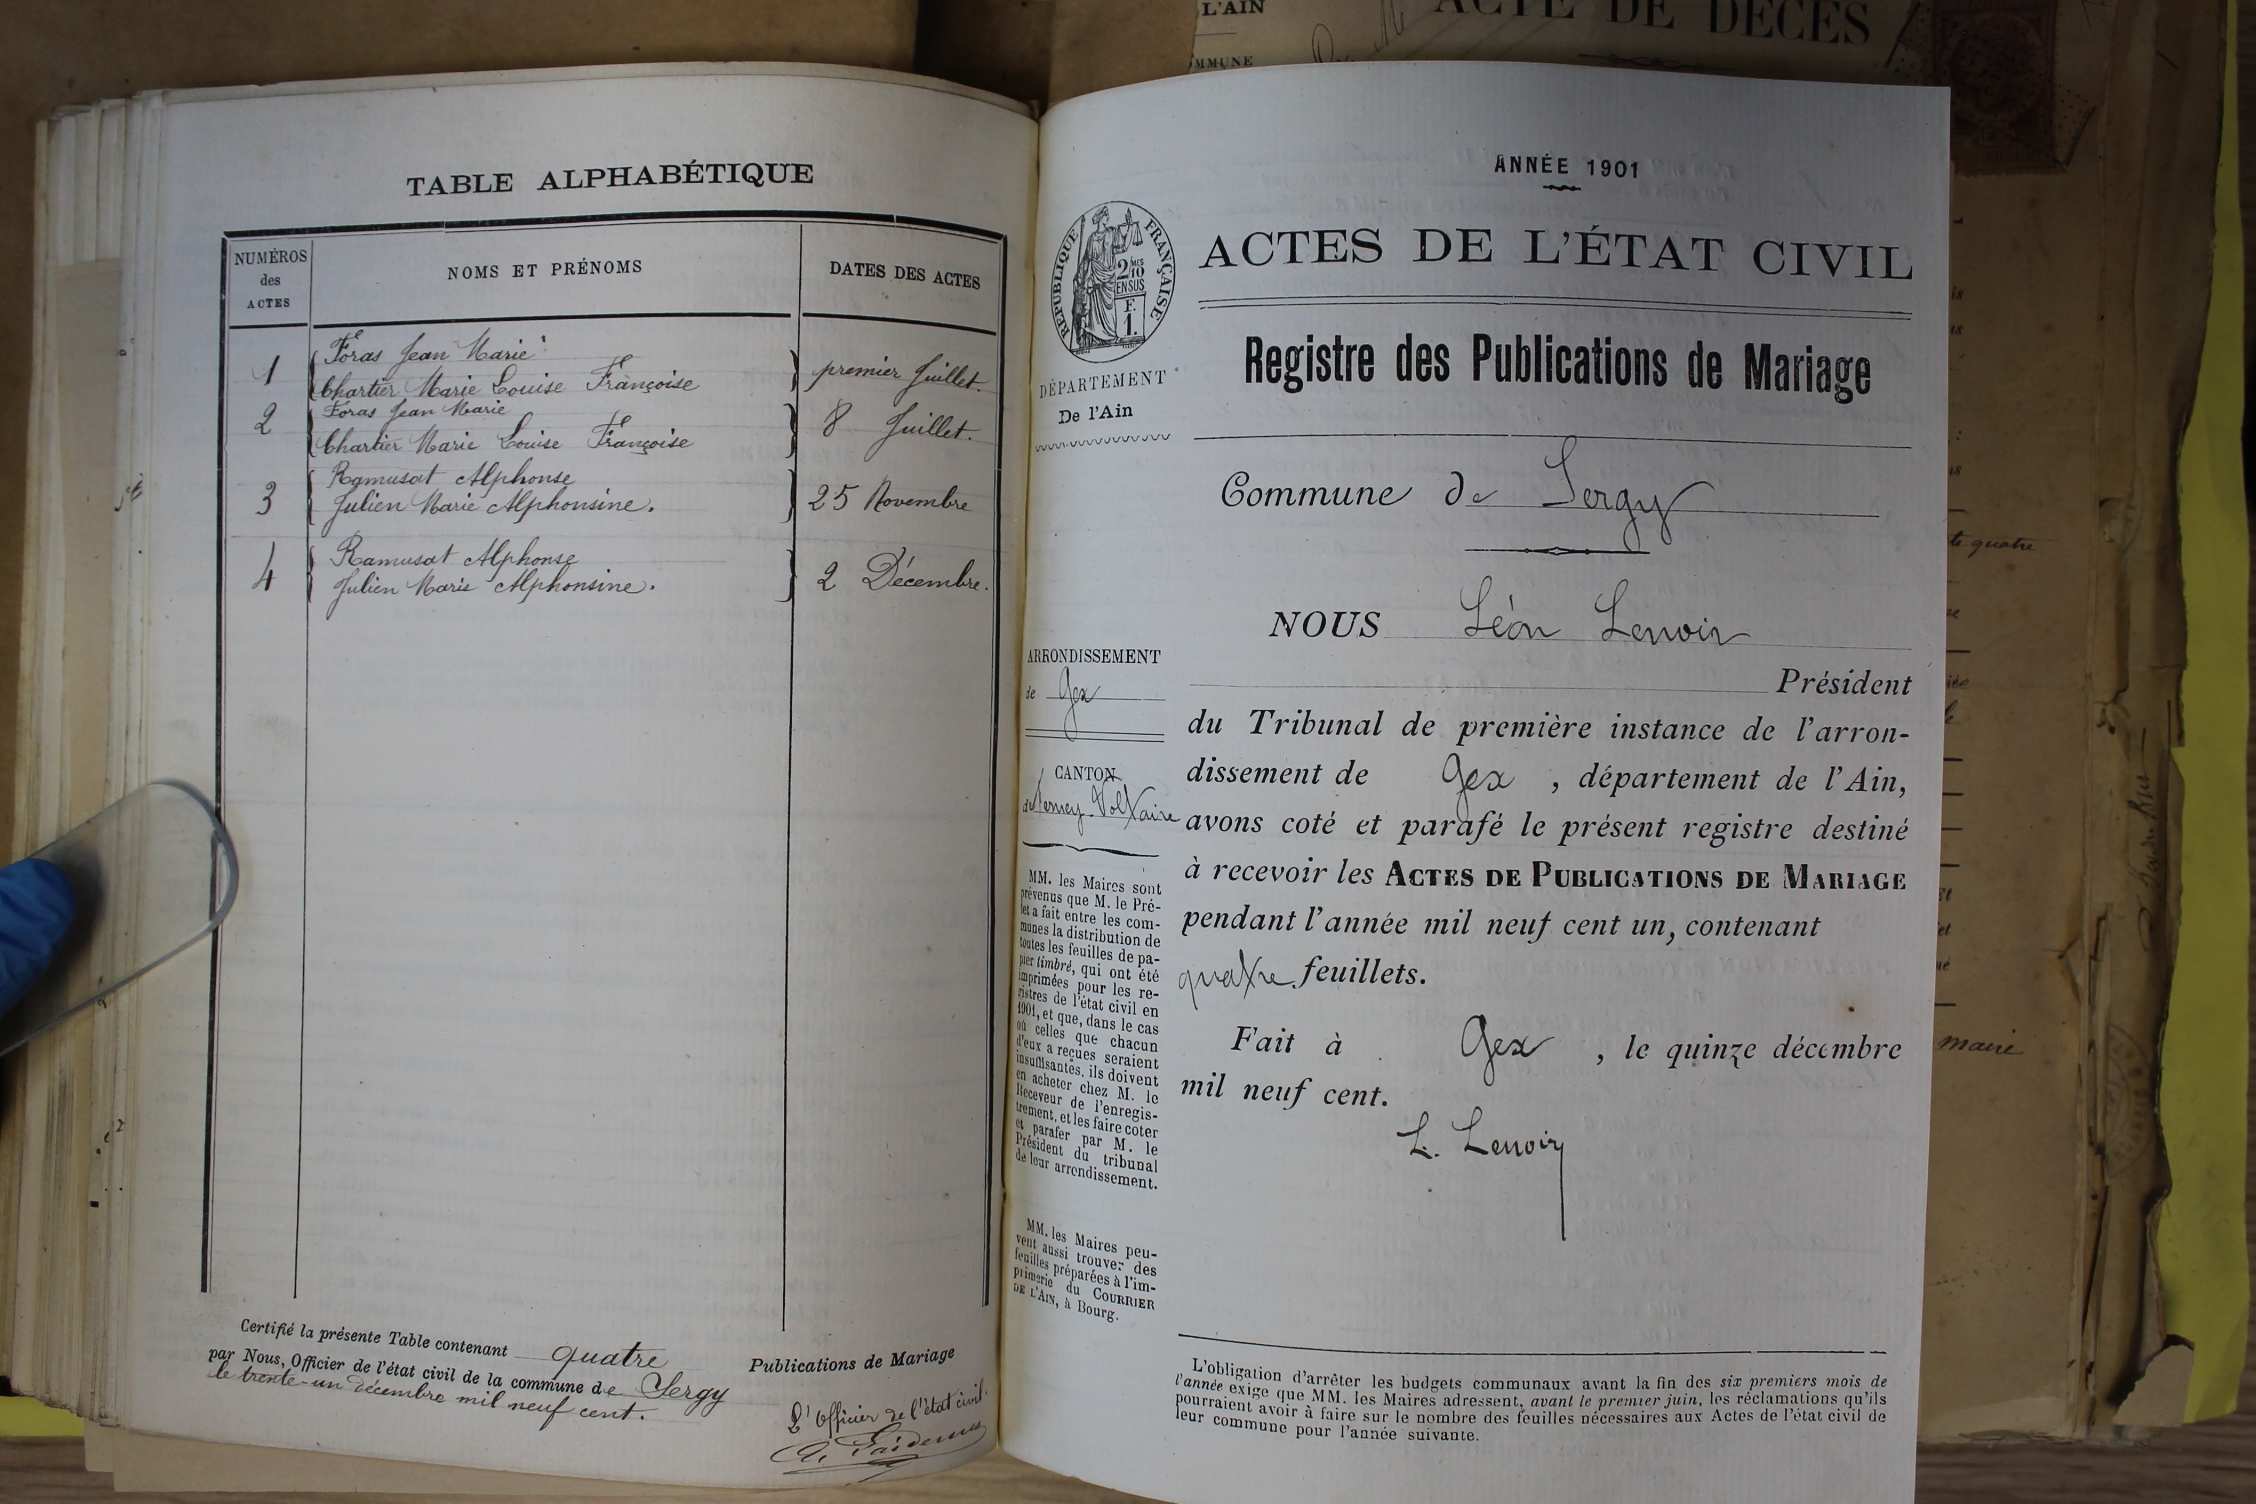 L'AIN
ACTE DE DÉCÈS
MMUNE
TABLE ALPHABÉTIQUE
NUMÉROS
des
ACTES
NOMS ET PRÉNOMS
DATES DES ACTES
1
Foras Jean Marie
Chartier Marie Louise Françoise
premier Juillet.
2
Foras Jean Marie
Chartier Marie Louise Françoise
8 Juillet.
3
Ramusat Alphonse
Julien Marie Alphonsine.
25 Novembre
4
Ramusat Alphonse
Julien Marie Alphonsine.
2 Décembre.
Certifié la présente Table contenant quatre Publications de Mariage
par Nous, Officier de l'état civil de la commune de Sergy
le trente-un décembre mil neuf cent.
L'officier de l'état civil.
ANNÉE 1901
RÉPUBLIQUE FRANÇAISE
2 MES
10
EN SUS
F.
1.
DÉPARTEMENT
De l'Ain
ACTES DE L'ÉTAT CIVIL
Registre des Publications de Mariage
Commune de Sergy
NOUS Léon Lenoir
Président
du Tribunal de première instance de l'arron-
dissement de Gex, département de l'Ain,
avons coté et parafé le présent registre destiné
à recevoir les ACTES DE PUBLICATIONS DE MARIAGE
pendant l'année mil neuf cent un, contenant
quatre feuillets.
Fait à Gex, le quinze décembre
mil neuf cent.
L. Lenoir
ARRONDISSEMENT
de Gex
CANTON
de Ferney-Voltaire
MM. les Maires sont
prévenus que M. le Pré-
fet a fait entre les com-
munes la distribution de
toutes les feuilles de pa-
pier timbré, qui ont été
imprimées pour les re-
gistres de l'état civil en
1901, et que, dans le cas
où celles que chacun
d'eux a reçues seraient
insuffisantes, ils doivent
en acheter chez M. le
Receveur de l'enregis-
trement, et les faire coter
et parafer par M. le
Président du tribunal
de leur arrondissement.
MM. les Maires peu-
vent aussi trouver des
feuilles préparées à l'im-
primerie du COURRIER
DE L'AIN, à Bourg.
L'obligation d'arrêter les budgets communaux avant la fin des six premiers mois de
l'année exige que MM. les Maires adressent, avant le premier juin, les réclamations qu'ils
pourraient avoir à faire sur le nombre des feuilles nécessaires aux Actes de l'état civil de
leur commune pour l'année suivante.
te quatre
maire